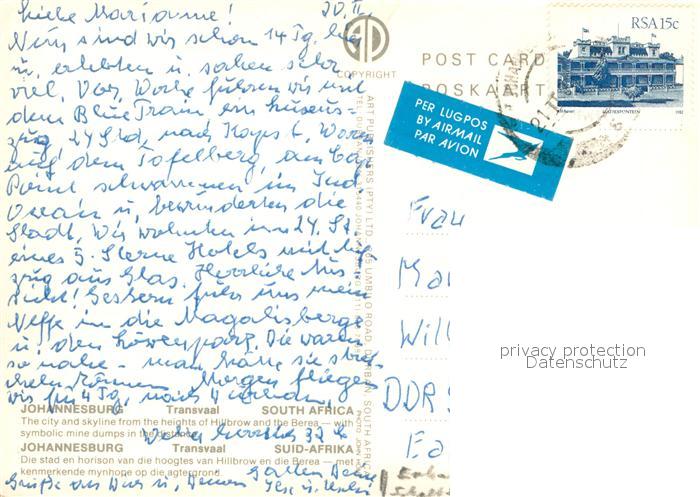 Liebe Marianne! 20.II.
Nun sind wir schon 14 Tg. hier
u. erlebten u. sahen sehr
viel. Vor. Woche fuhren wir mit
dem Blue Train ein Luxus-
zug, 24 Std. nach Kapst. Waren
auf dem Tafelberg, am Cap
Point schwammen im Ind.
Ozean u. bewunderten die
Stadt. Wir wohnten im 24. St.
eines 5. Sterne Hotels mit
zug aus Glas. Herrliche Aus
sicht! Gestern fuhr uns mein
Neffe in die Magalisberge
u. den Löwenpark. Die waren
so nahe - man hätte sie strei-
cheln können. Morgen fliegen
wir für 4 Tg. nach
32
Grüße aus u.
COPYRIGHT
POST CARD
POSKAART
RSA 15c
MATJIESFONTEIN 1982
PER LUGPOS
BY AIRMAIL
PAR AVION
ART PUBLISHERS (PTY) LTD. 665 UMBILO ROAD, DURBAN, SOUTH AFRICA
Frau
Ma
Will
DDR
privacy protection
Datenschutz
JOHANNESBURG Transvaal SOUTH AFRICA
The city and skyline from the heights of Hillbrow and the Berea — with
symbolic mine dumps in the distance.
JOHANNESBURG Transvaal SUID-AFRIKA
Die stad en horison van die hoogtes van Hillbrow en die Berea — met
kenmerkende mynhope op die agtergrond.